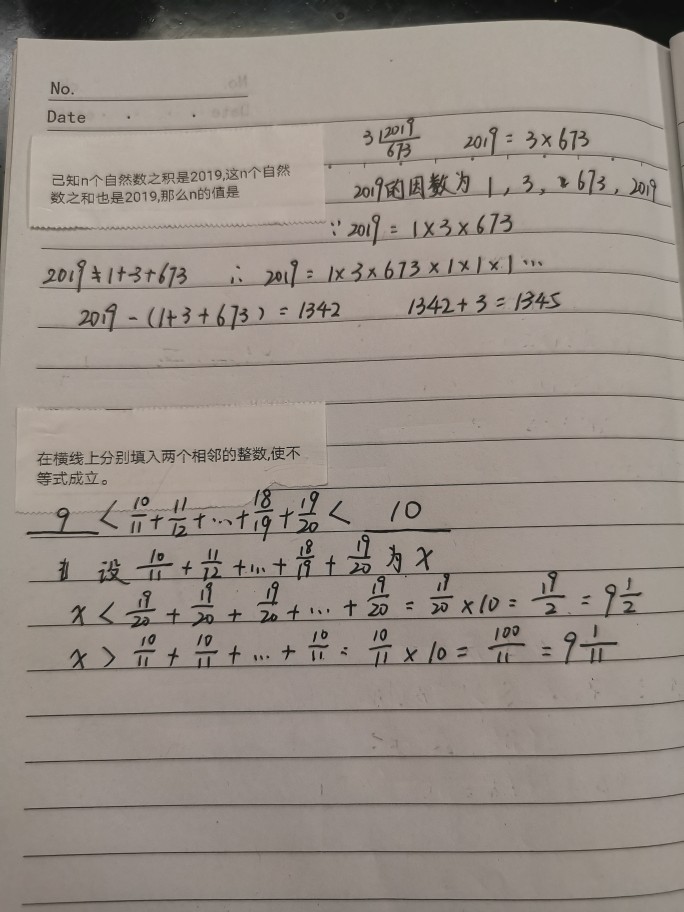 No.
Date
3 2019
673
2019 = 3 × 673
已知n个自然数之积是2019,这n个自然
数之和也是2019,那么n的值是
2019的因数为 1, 3, 673, 2019
∵ 2019 = 1 × 3 × 673
2019 ≠ 1+3+673 ∴ 2019 = 1×3×673×1×1×1…
2019 - (1+3+673) = 1342 1342+3 = 1345
在横线上分别填入两个相邻的整数,使不
等式成立。
9 < 10/11 + 11/12 + … + 18/19 + 19/20 < 10
设 10/11 + 11/12 + … + 18/19 + 19/20 为 x
x < 19/20 + 19/20 + 19/20 + … + 19/20 = 19/20 × 10 = 19/2 = 9 1/2
x > 10/11 + 10/11 + … + 10/11 = 10/11 × 10 = 100/11 = 9 1/11